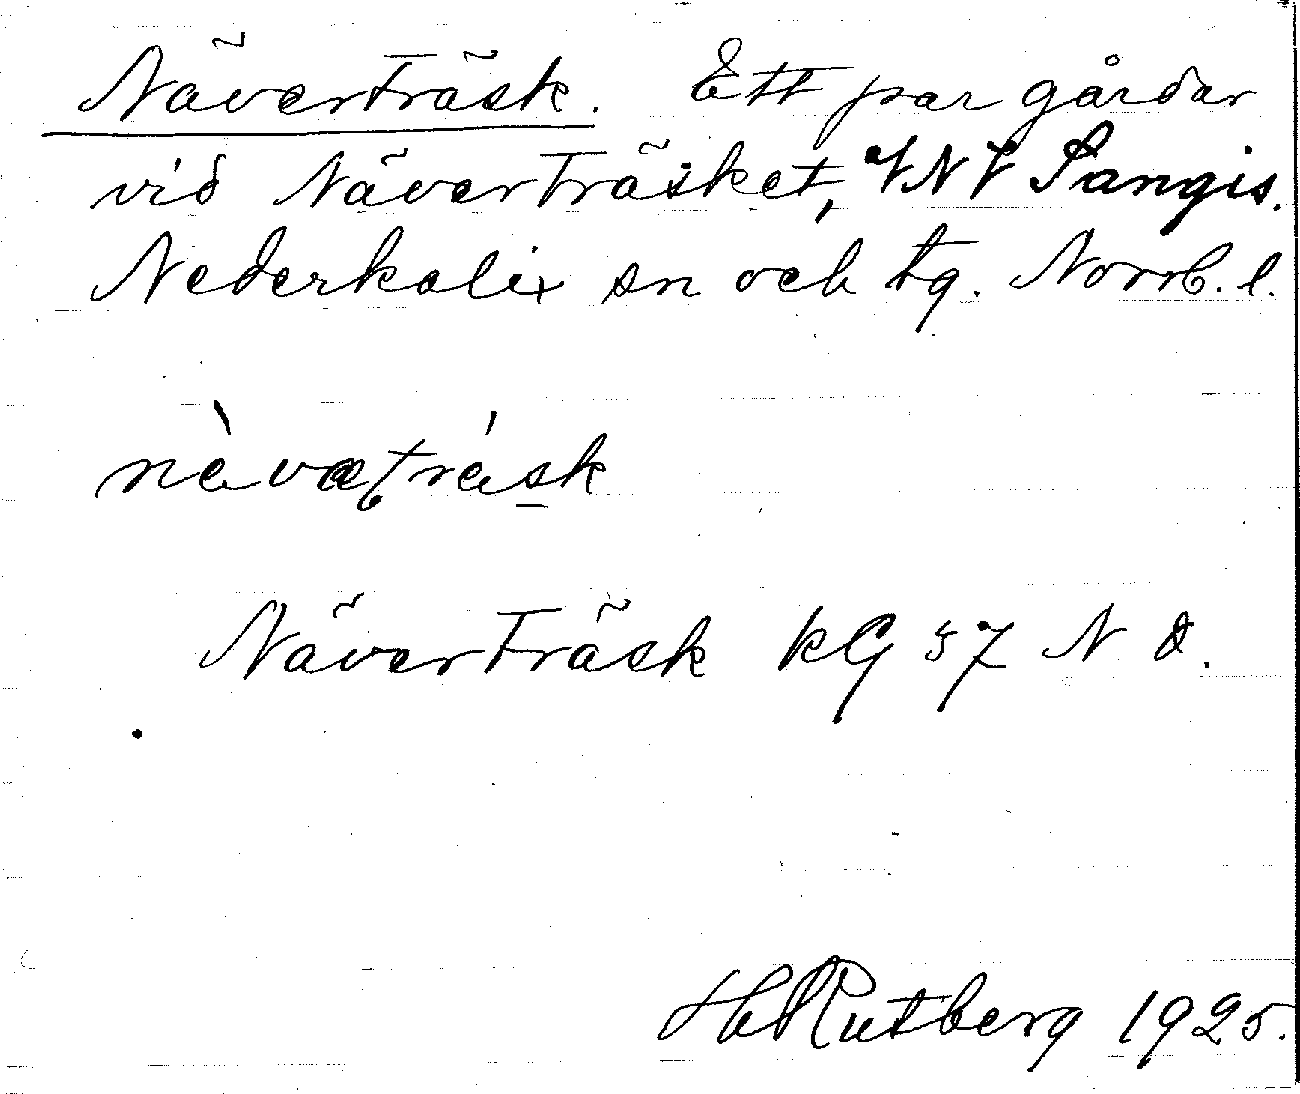 Näverträsk. Ett par gårdar
vid Näverträsket, VNV Sangis.
Nederkalix sn och tg. Norrb. l.
nèvaträsk
Näverträsk KG 57 N
H Rutberg 1925.